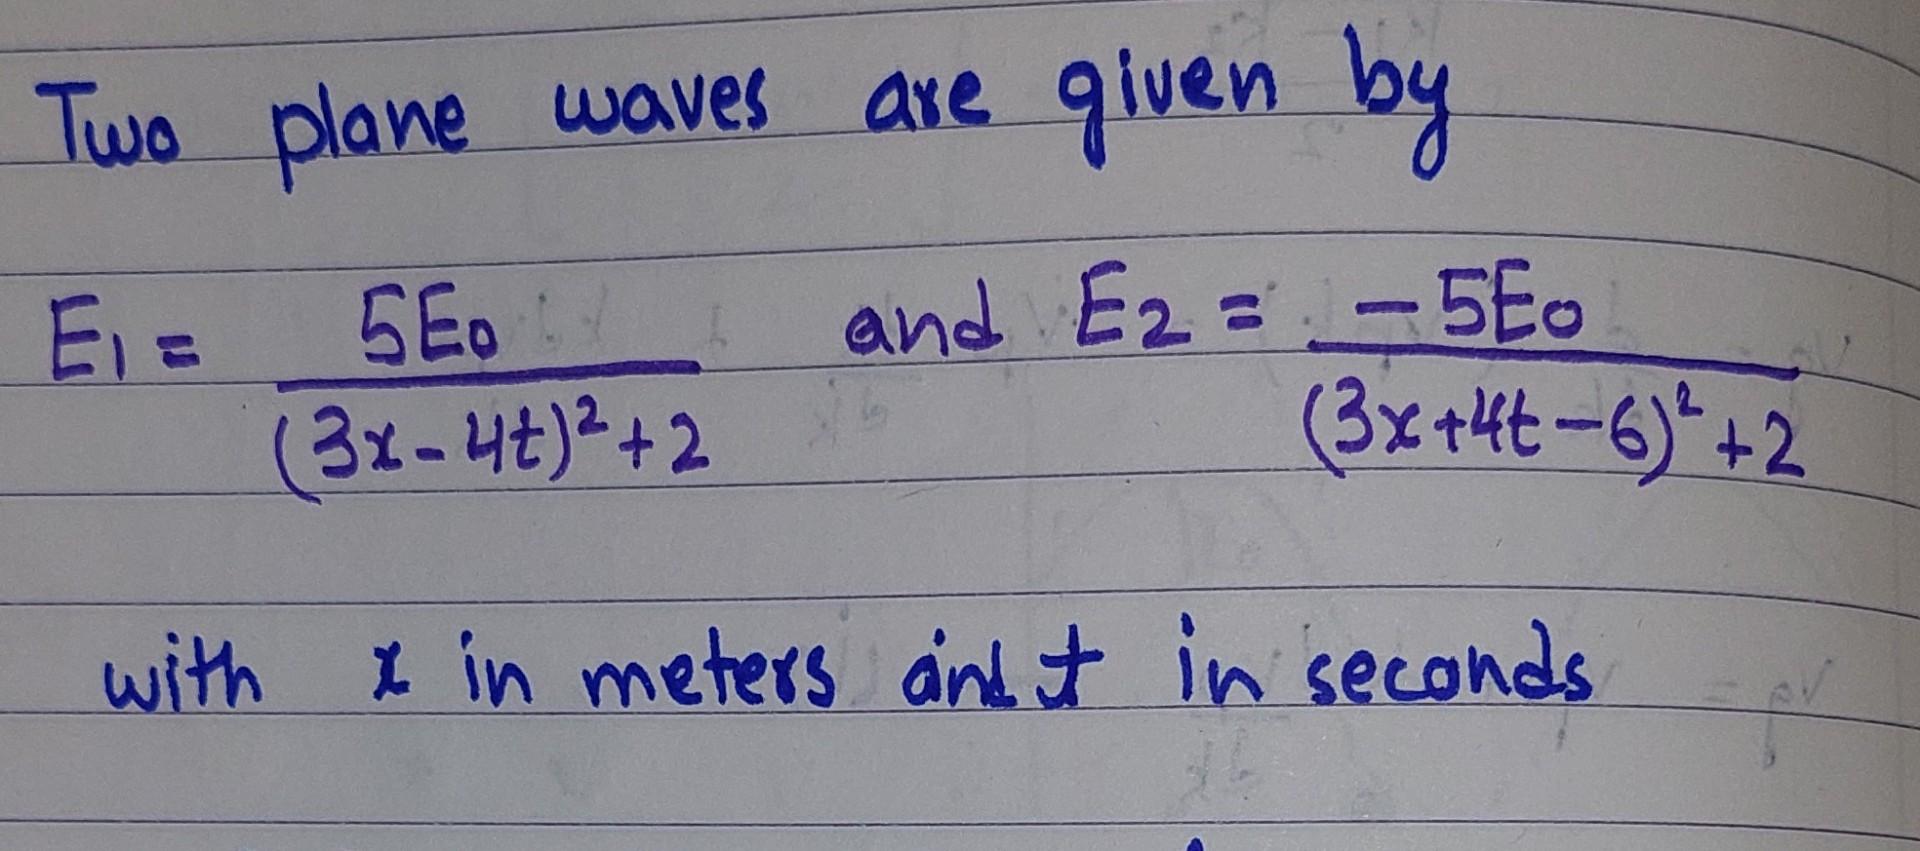 Two plane waves are given by
E1 = 5E0 / (3x - 4t)² + 2 and E2 = -5E0 / (3x + 4t - 6)² + 2
with x in meters and t in seconds